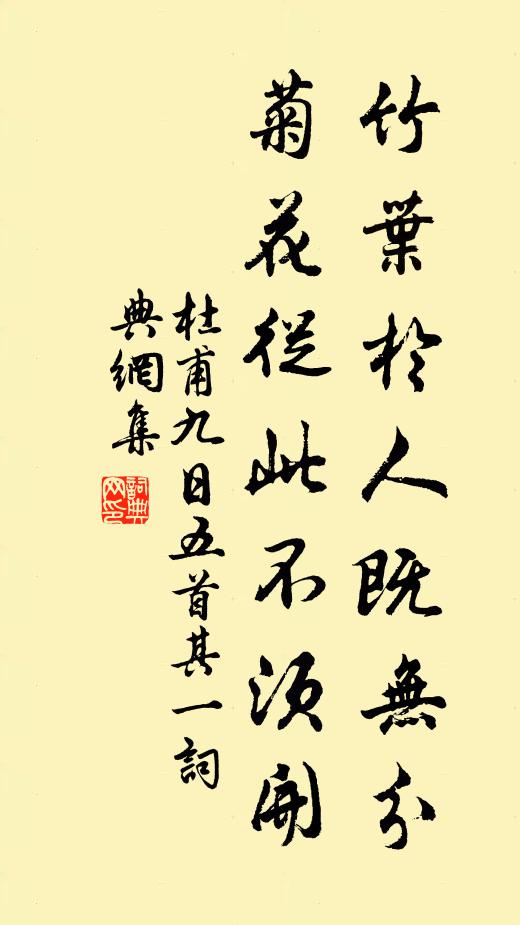 竹葉於人既無分
菊花從此不須開
杜甫九日五首其一詞
典網集
詞典网印